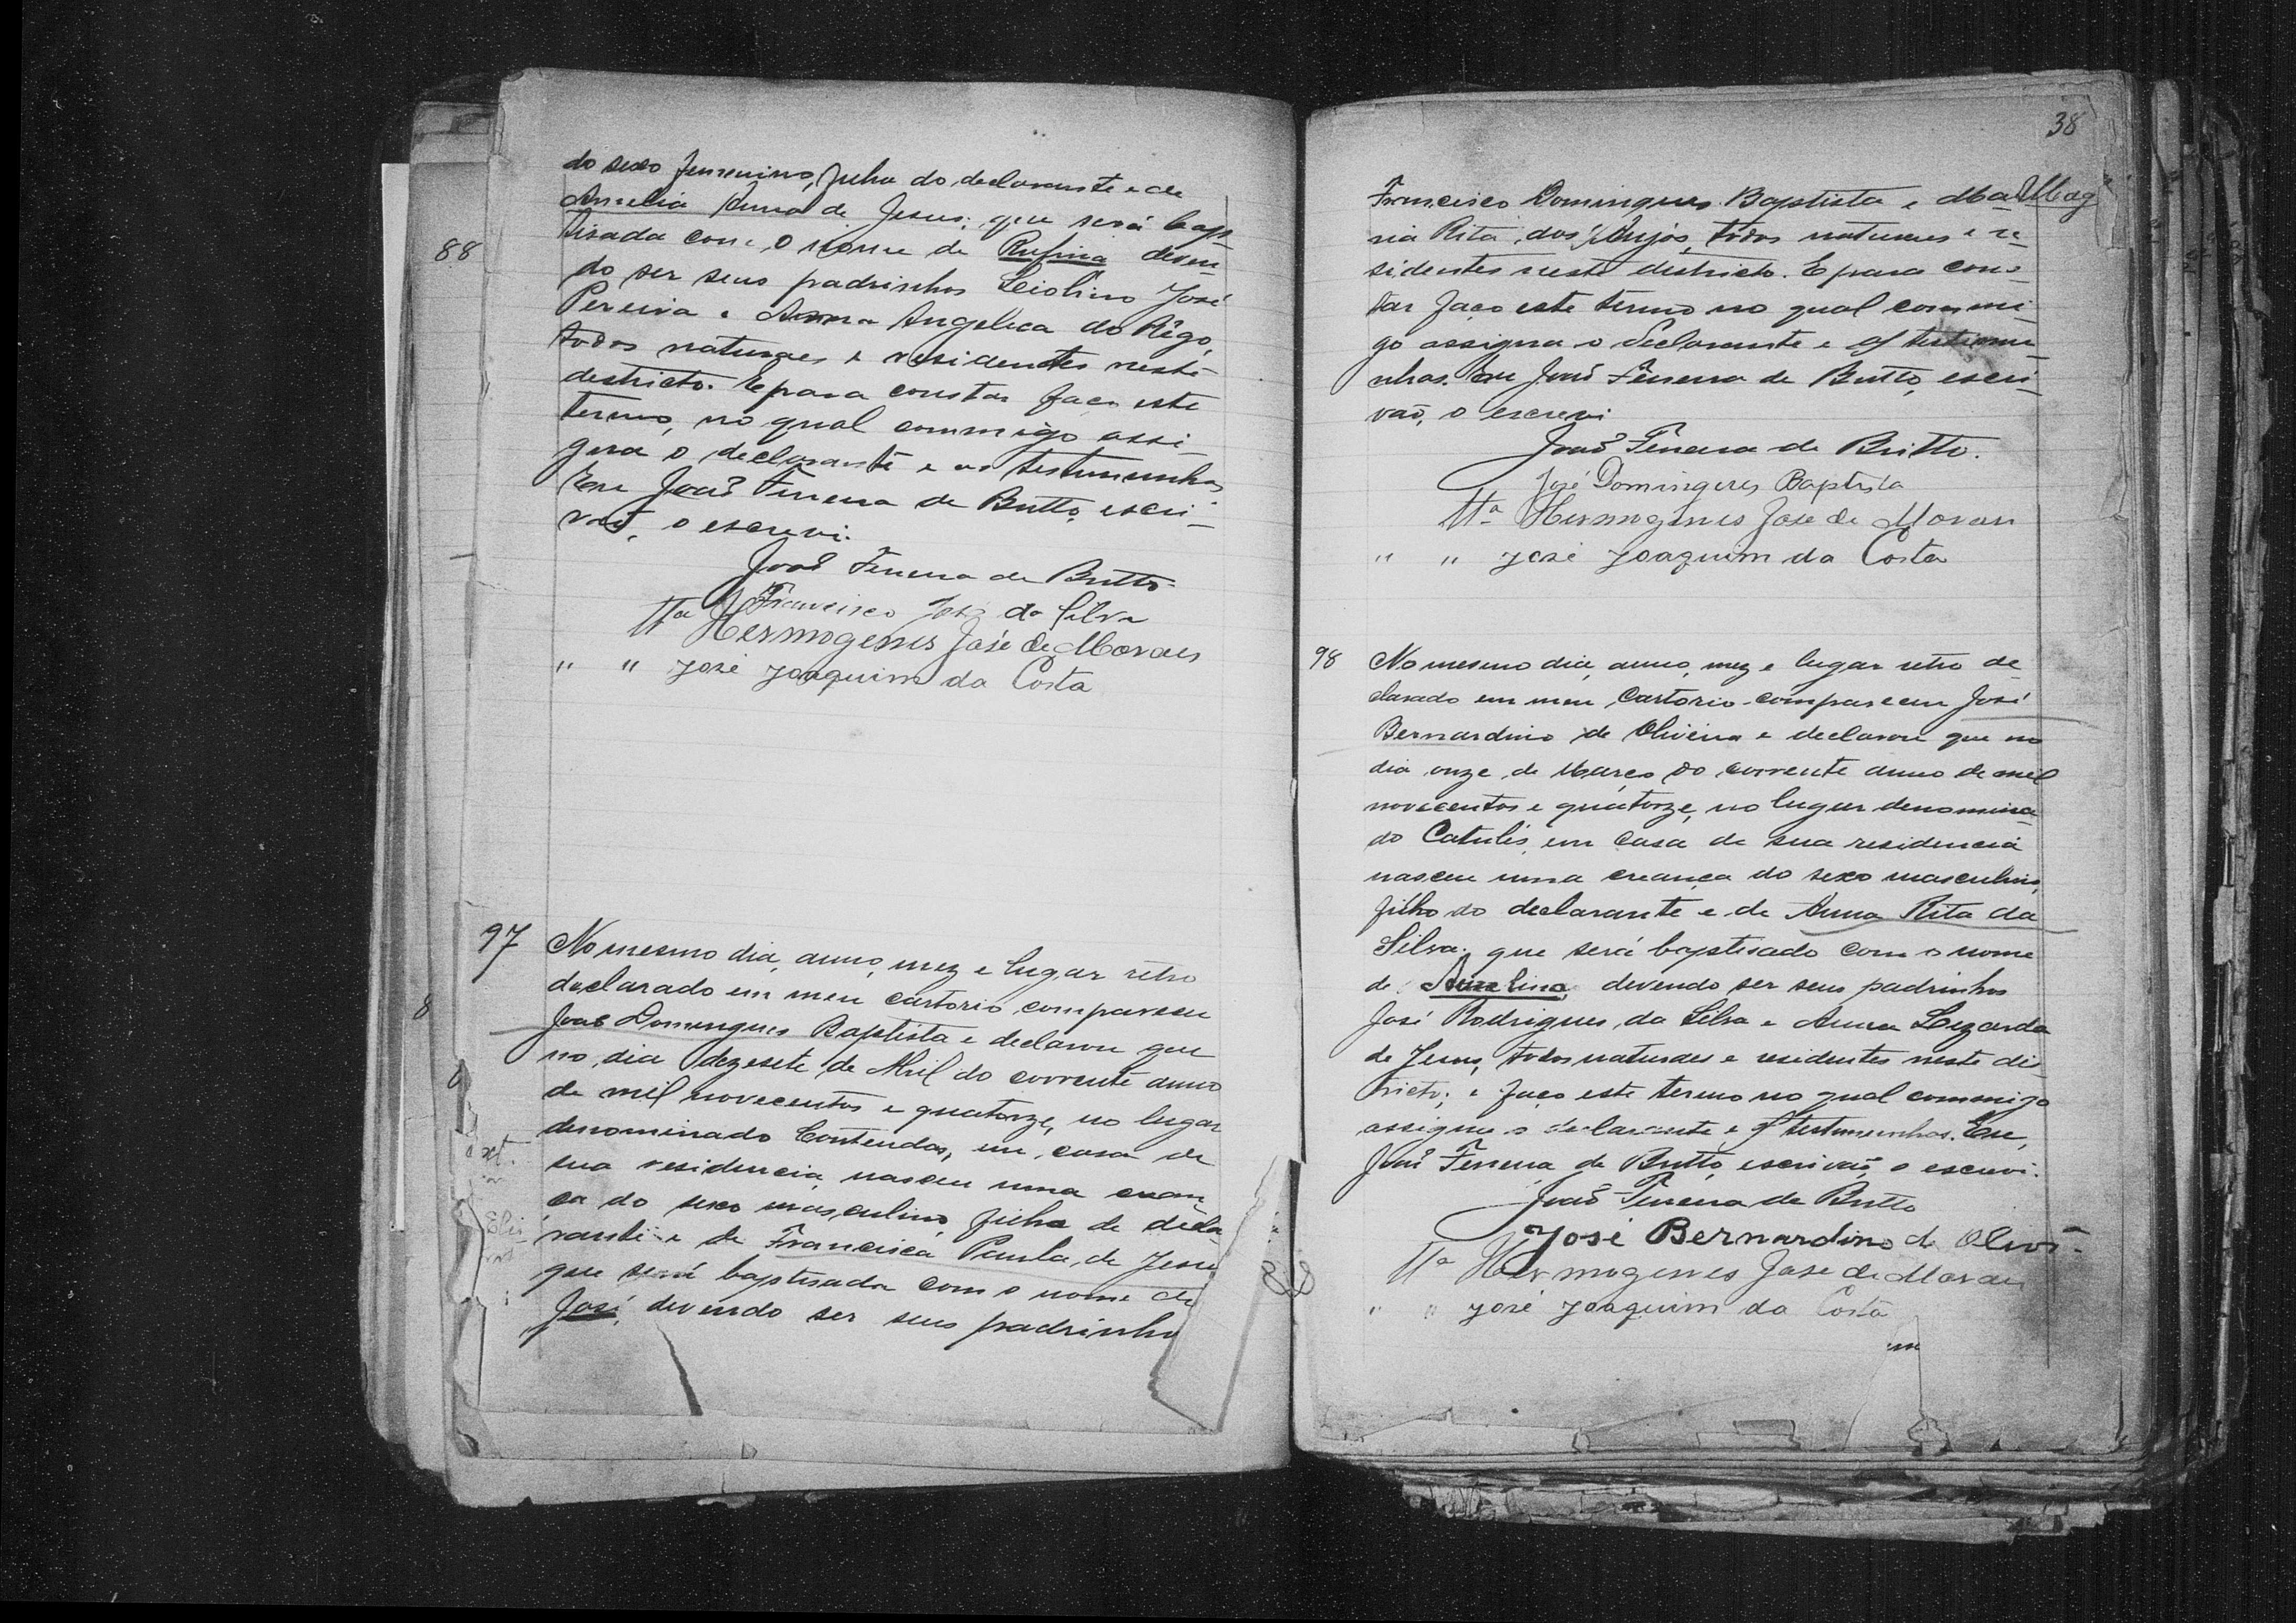 do sexo femenino, filha do declarante e de
Amelia Anna de Jesus; que será bap-
tisada com o nome de Rufina deven-
do ser seus padrinhos Liolino José
Pereira e Anna Angelica do Rêgo,
todos naturaes e residentes neste
districto. E para constar faço este
termo, no qual commigo assi-
gna o declarante e as testemunhas
Eu João Ferreira de Britto, escri-
vão, o escrevi.
João Ferreira de Britto.
Francisco José da Silva
Ttª Hermogenes José de Moraes
" " José Joaquim da Costa
88
97 No mesmo dia, anno, mez e lugar retro
declarado em meu cartorio, compareceu
João Domingues Baptista e declarou que
no dia dezesete de Abril do corrente anno
de mil novecentos e quatorze, no lugar
denominado Contendas, em casa de
sua residencia nasceu uma crean-
ça do sexo masculino, filha de decla
rante e de Francisca Paula de Jesus
que será baptisada com o nome de
José, devendo ser seus padrinhos
8
38
Francisco Domingues Baptista e Ma
ria Rita dos Anjos, todos naturaes e re-
sidentes neste districto. E para cons-
tar faço este termo no qual commi-
go assigna o declarante e as testemu-
nhas. Eu João Ferreira de Britto, escri-
vão, o escrevi
João Ferreira de Britto.
José Domingues Baptista
Ttª Hermogenes José de Moraes
" " José Joaquim da Costa
98 No mesmo dia, anno, mez e lugar retro de-
clarado em meu cartorio compareceu José
Bernardino de Oliveira e declarou que no
dia onze de Março do corrente anno de mil
novecentos e quatorze, no lugar denomina-
do Catulés, em casa de sua residencia
nasceu uma creança do sexo masculino,
filho do declarante e de Anna Rita da
Silva; que será baptisado com o nome
de devendo ser seus padrinhos
José Rodrigues da Silva e Anna Lizarda
de Jesus, todos naturaes e residentes neste dis-
tricto; e faço este termo no qual commigo
assigna o declarante e as testemunhas. Eu,
João Ferreira de Britto, escrivão o escrevi.
João Ferreira de Britto
José Bernardino de Olivi-
Ttª Hermogenes José de Moraes
" " José Joaquim da Costa